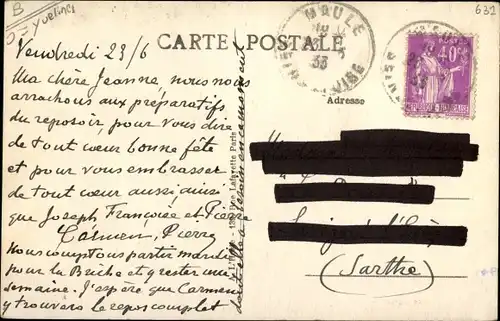 B
Yvelines
632
MAULE
33
SEINE ET OISE
CARTE POSTALE
40c
POSTES
REPUBLIQUE FRANÇAISE
Adresse
Vendredi 23/6
Ma chère Jeanne, nous nous
arrachons aux préparatifs
du reposoir, pour vous dire
de tout cœur bonne fête
et pour vous embrasser
de tout cœur aussi ainsi
que Joseph Françoise et Pierre
Carmen, Pierre
Nous comptons partir mardi
pour la Briche et y rester une
semaine. J'espère que Carmen
y trouvera le repos complet
dont elle a besoin en ce moment
Rue Lafayette Paris
(Sarthe)